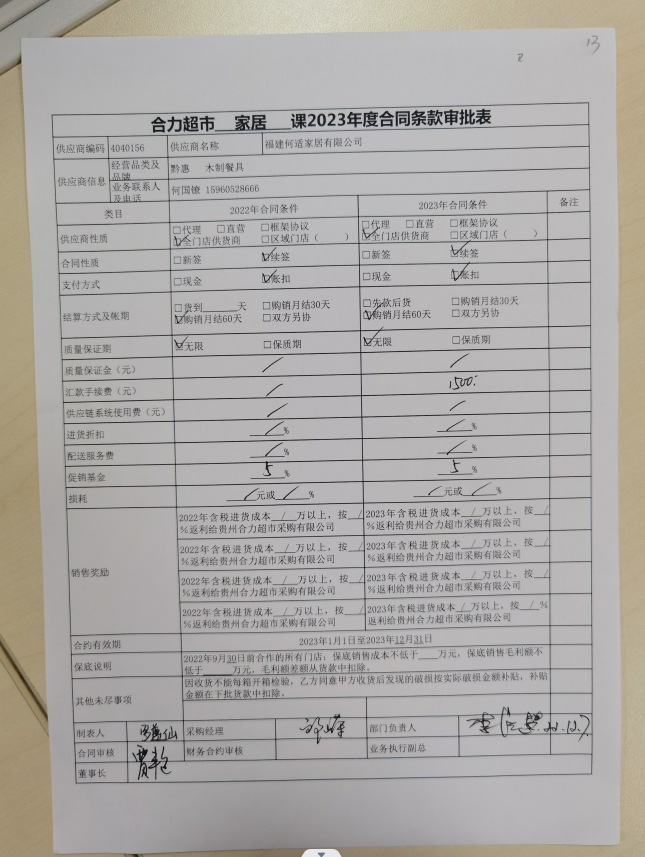 13
合力超市 家居 课2023年度合同条款审批表
供应商编码 4040156 供应商名称 福建何适家居有限公司
供应商信息 经营品类及品牌 黔惠 木制餐具
业务联系人及电话 何国镣 15960528666
类目 2022年合同条件 2023年合同条件 备注
供应商性质 □代理 □直营 □框架协议 □代理 □直营 □框架协议
☑全门店供货商 □区域门店（ ） ☑全门店供货商 □区域门店（ ）
合同性质 □新签 ☑续签 □新签 ☑续签
支付方式 □现金 ☑账扣 □现金 ☑账扣
结算方式及帐期 □货到____天 □购销月结30天 □先款后货 □购销月结30天
☑购销月结60天 □双方另协 ☑购销月结60天 □双方另协
质量保证期 ☑无限 □保质期 ☑无限 □保质期
质量保证金（元） / /
汇款手续费（元） / 1500
供应链系统使用费（元） / /
进货折扣 / % / %
配送服务费 / % / %
促销基金 5 % 5 %
损耗 / 元或 / % / 元或 / %
销售奖励
2022年含税进货成本 / 万以上，按 / %返利给贵州合力超市采购有限公司 2023年含税进货成本 / 万以上，按 / %返利给贵州合力超市采购有限公司
2022年含税进货成本 / 万以上，按 / %返利给贵州合力超市采购有限公司 2023年含税进货成本 / 万以上，按 / %返利给贵州合力超市采购有限公司
2022年含税进货成本 / 万以上，按 / %返利给贵州合力超市采购有限公司 2023年含税进货成本 / 万以上，按 / %返利给贵州合力超市采购有限公司
2022年含税进货成本 / 万以上，按 / %返利给贵州合力超市采购有限公司 2023年含税进货成本 / 万以上，按 / %返利给贵州合力超市采购有限公司
合约有效期 2023年1月1日至2023年12月31日
保底说明 2022年9月30日前合作的所有门店：保底销售成本不低于____万元，保底销售毛利额不
低于____万元，毛利额差额从货款中扣除。
其他未尽事项 因收货不能每箱开箱检验，乙方同意甲方收货后发现的破损按实际破损金额补贴，补贴
金额在下批货款中扣除。
制表人 采购经理 部门负责人 22.12.7
合同审核 财务合约审核 业务执行副总
董事长